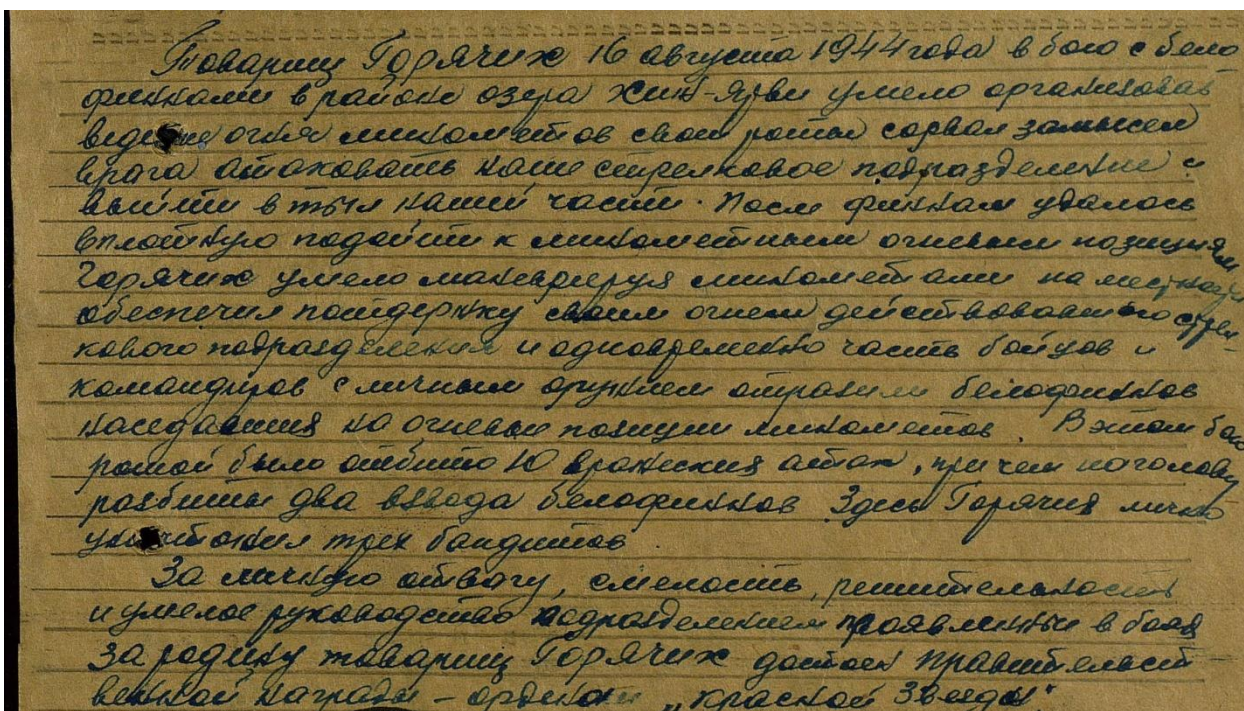 Товарищ Горячих 16 августа 1944 года в бою с бело
финнами в районе озера Хюн-Ярви умело организовав
ведение огня минометов своей роты сорвал замысел
врага атаковать наше стрелковое подразделение и
выйти в тыл нашей части. После финнам удалось
вплотную подойти к минометным огневым позициям
Горячих умело маневрируя минометами на местности
обеспечил поддержку своим огнем действовавшего стрел-
кового подразделения и одновременно часть бойцов и
командиров с личным оружием отразили белофиннов
наседавших на огневые позиции минометов. В этом бою
ротой было отбито 10 вражеских атак, при чем наголову
разбиты два взвода белофиннов. Здесь Горячих лично
уничтожил трех бандитов.
За личную отвагу, смелость, решительность
и умелое руководство подразделением проявленные в боях
за родину товарищ Горячих достоен правительст-
венной награды – ордена „Красной Звезды".